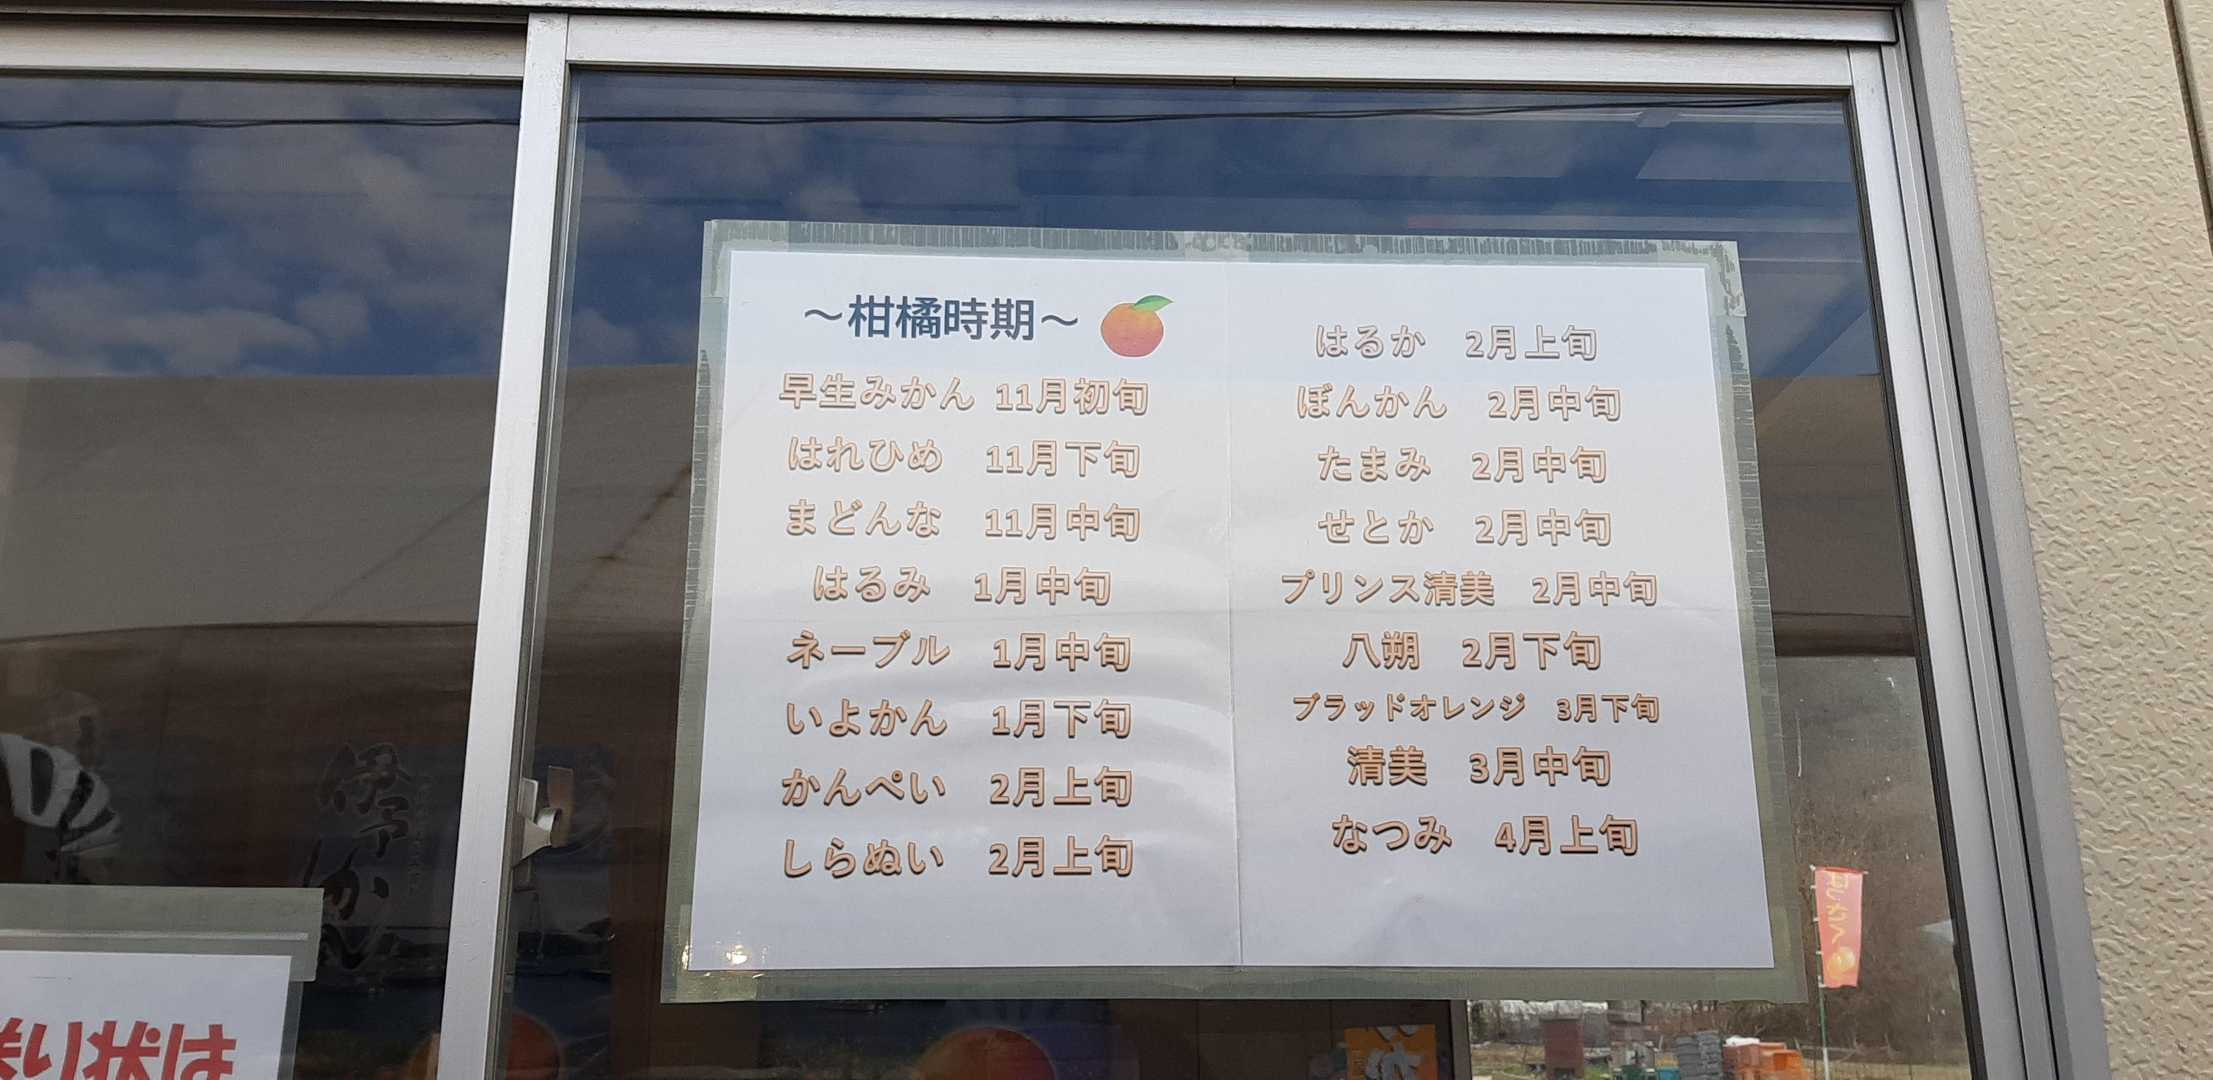 ～柑橘時期～
早生みかん 11月初旬
はれひめ 11月下旬
まどんな 11月中旬
はるみ 1月中旬
ネーブル 1月中旬
いよかん 1月下旬
かんぺい 2月上旬
しらぬい 2月上旬
はるか 2月上旬
ぽんかん 2月中旬
たまみ 2月中旬
せとか 2月中旬
プリンス清美 2月中旬
八朔 2月下旬
ブラッドオレンジ 3月下旬
清美 3月中旬
なつみ 4月上旬
伊予かん
送り状は